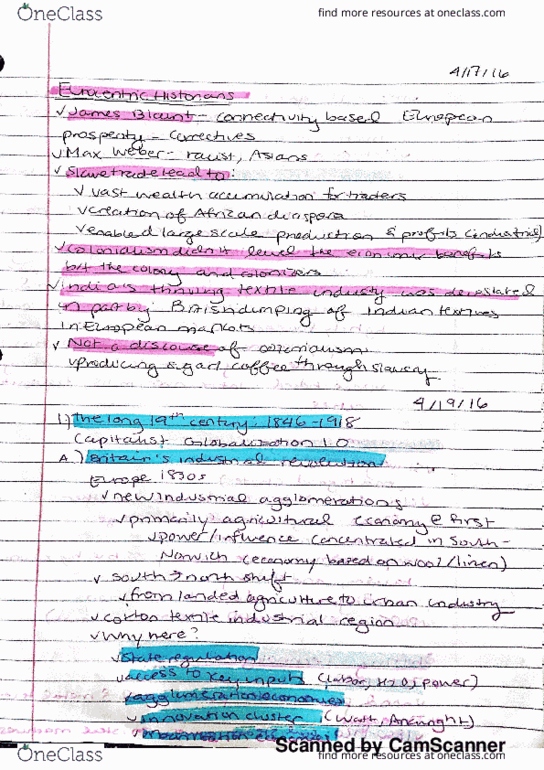 OneClass
find more resources at oneclass.com
4/17/16
Eurocentric Historians
✓ James Blaunt - connectivity based European
prosperity - Correctives
✓ Max Weber - racist, Asians
✓ Slave trade lead to:
✓ vast wealth accumulation for traders
✓ creation of African diaspora
✓ enabled large scale production & profits (industries)
✓ Colonialism didn't level the economic benefits
b/t the colony and colonizers
✓ India's thriving textile industry was devastated
in part by British dumping of Indian textiles
in European markets
✓ Not a discourse of colonialism
✓ producing sugar/coffee through slavery
4/19/16
1) The long 19th century: 1846-1918
Capitalist Globalization 1.0
A.) Britain's industrial revolution
Europe 1830s
✓ new industrial agglomerations
✓ primarily agricultural economy @ first
✓ power/influence concentrated in South-
Norwich (economy based on wool/linen)
✓ South → north shift
✓ from landed agriculture to urban industry
✓ cotton textile industrial region
✓ Why here?
✓ state regulation
✓ access to key inputs (labor, H2O, power)
✓ agglomeration economies
✓ innovation cluster (Watt, Arkwright)
Scanned by CamScanner
OneClass
find more resources at oneclass.com